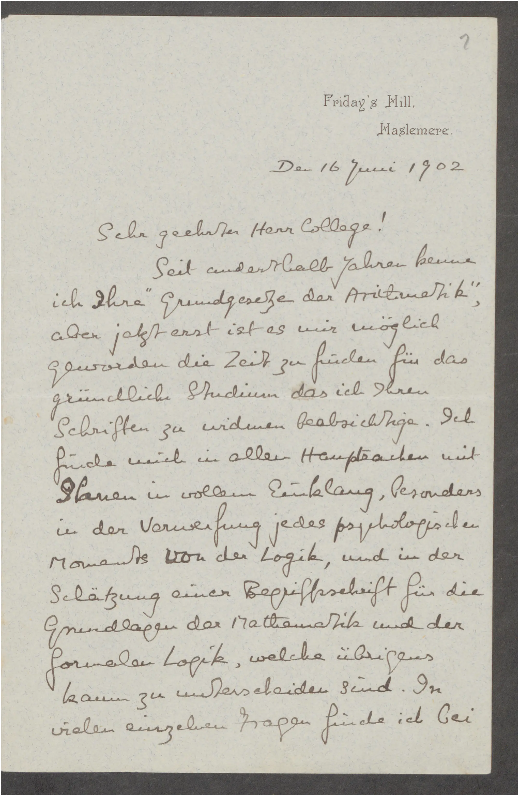 2
Friday's Hill.
Haslemere.
Den 16 Juni 1902
Sehr geehrter Herr College!
Seit anderthalb Jahren kenne
ich Ihre "Grundgesetze der Arithmetik",
aber jetzt erst ist es mir möglich
geworden die Zeit zu finden für das
gründliche Studium das ich Ihren
Schriften zu widmen beabsichtige. Ich
finde mich in allen Hauptsachen mit
Ihnen in vollem Einklang, besonders
in der Verwerfung jedes psychologischen
Moments von der Logik, und in der
Schätzung einer Begriffsschrift für die
Grundlagen der Mathematik und der
formalen Logik, welche übrigens
kaum zu unterscheiden sind. In
vielen einzelnen Fragen finde ich bei